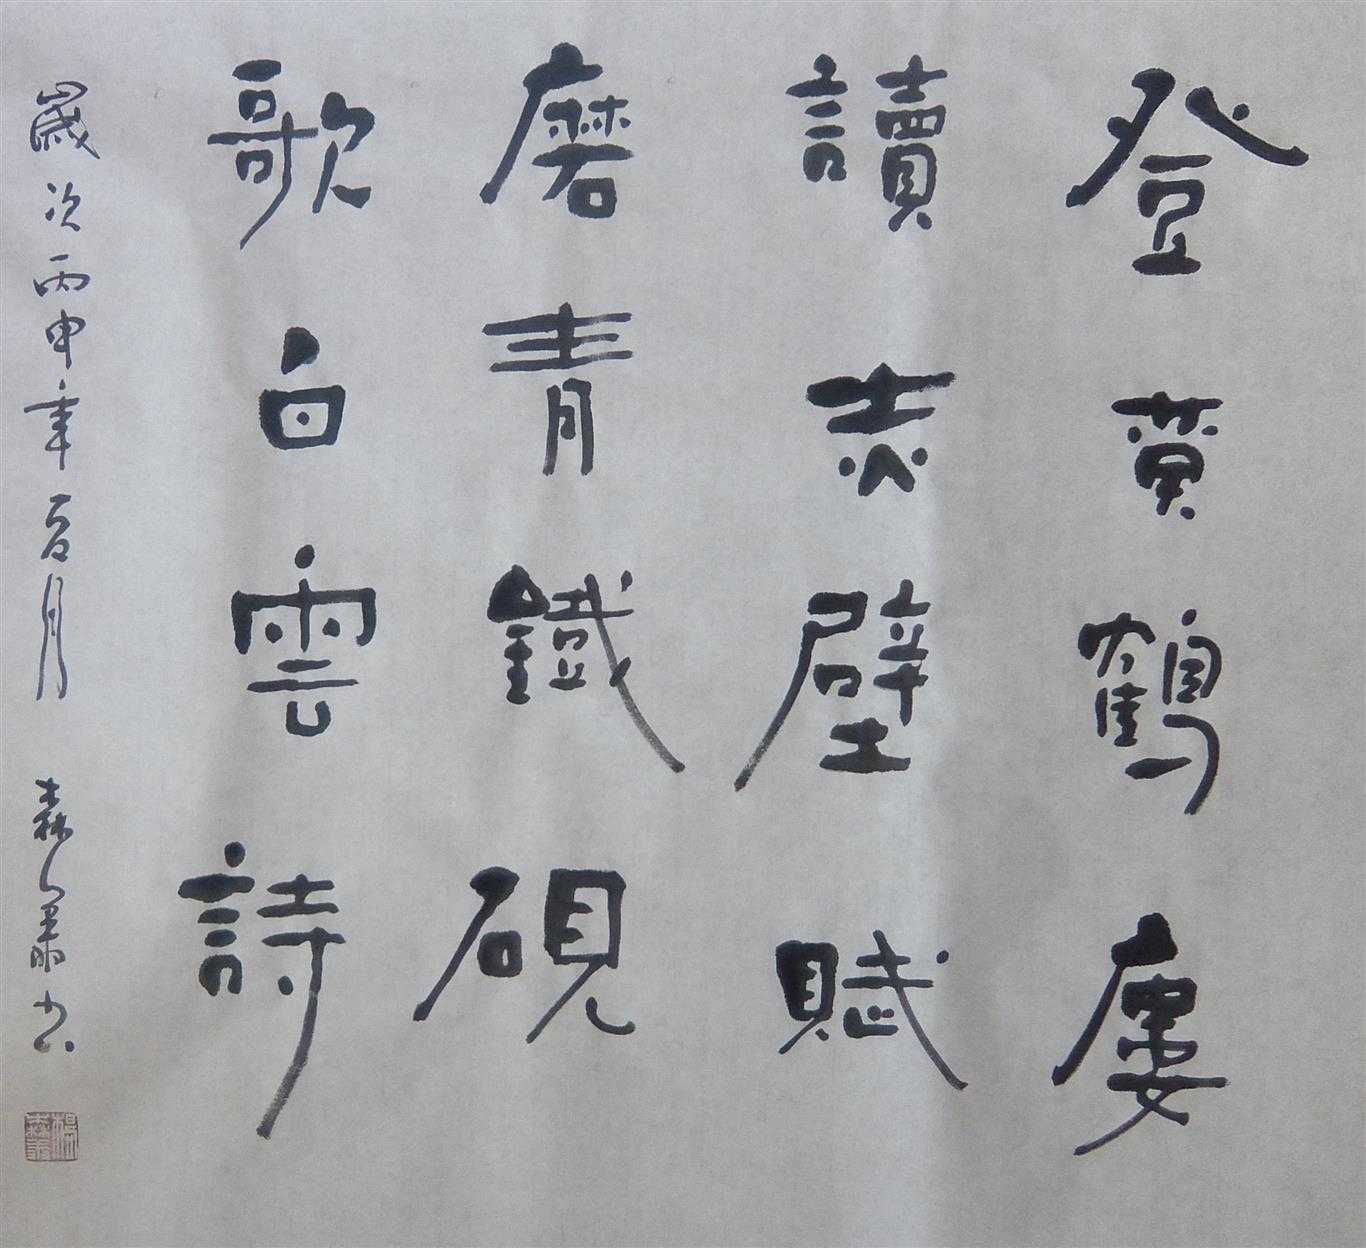 登黄鶴廔
讀赤壁賦
磨青鐵硯
歌白雲詩
歲次丙申年夏月 森肅书